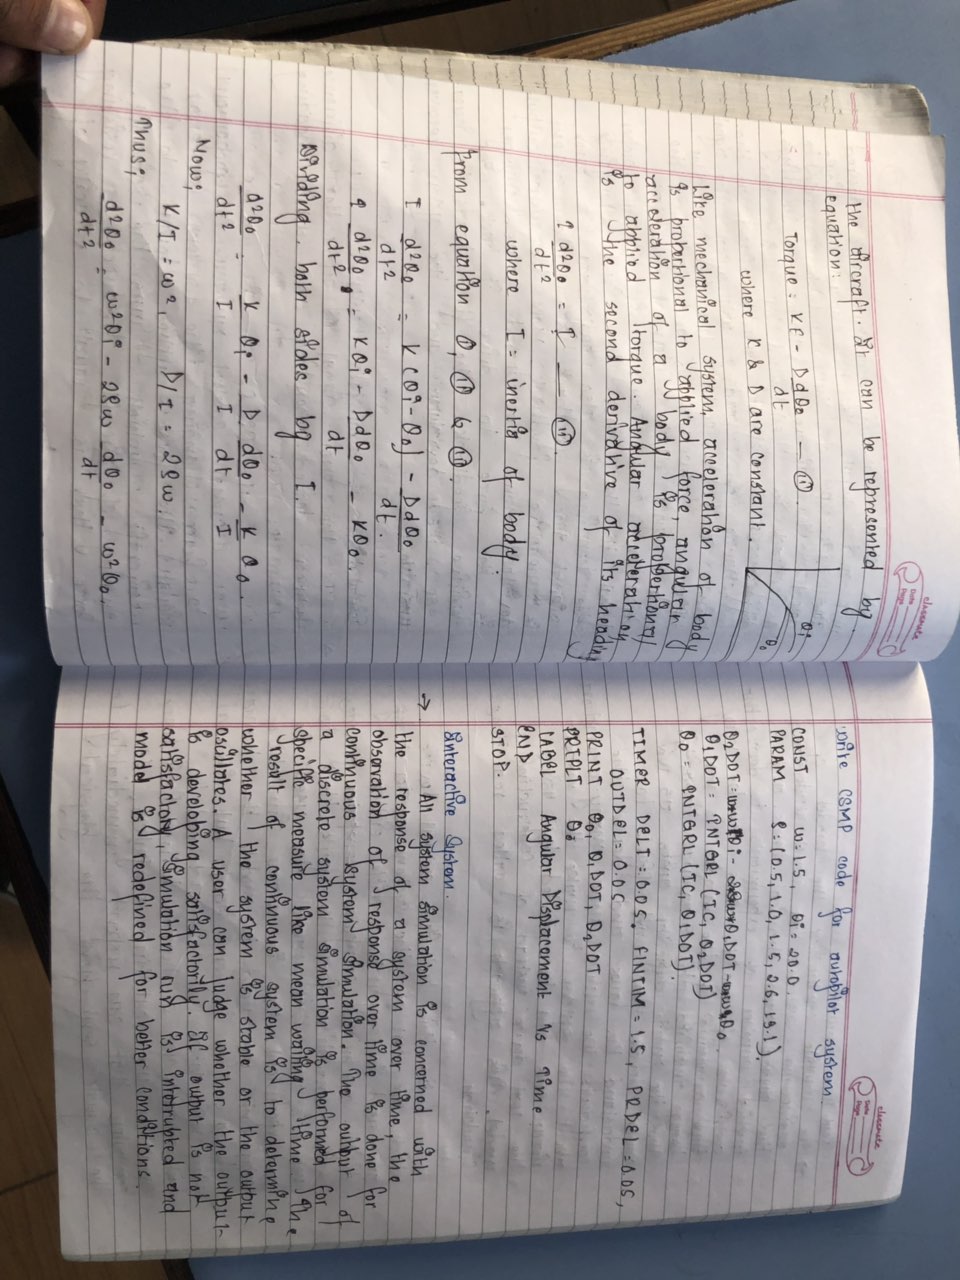 classmate
Date
Page
the aircraft. It can be represented by
equation:
Torque = KE - D dθ₀/dt — (ii)
where K & D are constant.
θi
θ₀
Like mechanical system, acceleration of body
is proportional to applied force, angular
acceleration of a body is proportional
to applied torque. Angular acceleration
is the second derivative of its heading
I d²θ₀/dt² = T — (iii)
where I = inertia of body.
From equation (i), (ii) & (iii)
I d²θ₀/dt² = K(θi-θ₀) - D dθ₀/dt.
I d²θ₀/dt² = Kθi - D dθ₀/dt - Kθ₀.
Dividing both sides by I.
d²θ₀/dt² = K/I θi - D/I dθ₀/dt - K/I θ₀.
Now;
K/I = w², D/I = 2ξw.
Thus;
d²θ₀/dt² = w²θi - 2ξw dθ₀/dt - w²θ₀.
classmate
Date
Page
Write CSMP code for autopilot system.
CONST w = 1.5, θi = 20.0
PARAM ξ = (0.5, 1.0, 1.5, 0.6, 19.1).
θ₂DOT = θi - θ₁DOT - θ₀
θ₁DOT = INTGRL (IC, θ₂DOT)
θ₀ = INTGRL (IC, θ₁DOT).
TIMER DELT = 0.05, FINTIM = 1.5, PRDEL = 0.05,
OUTDEL = 0.05
PRINT θ₀, θ₁DOT, θ₂DOT
PRTPLT θ₀
LABEL Angular Displacement Vs Time
END
STOP.
Interactive System.
→ All system simulation is concerned with
the response of a system over time, the
observation of response over time is done for
continuous system simulation. The output of
a discrete system simulation is performed for
specific measure like mean waiting time. The
result of continuous system is to determine
whether the system is stable or the output
oscillates. A user can judge whether the output
is developing satisfactorily. If output is not
satisfactory, simulation run is interrupted and
model is redefined for better conditions.